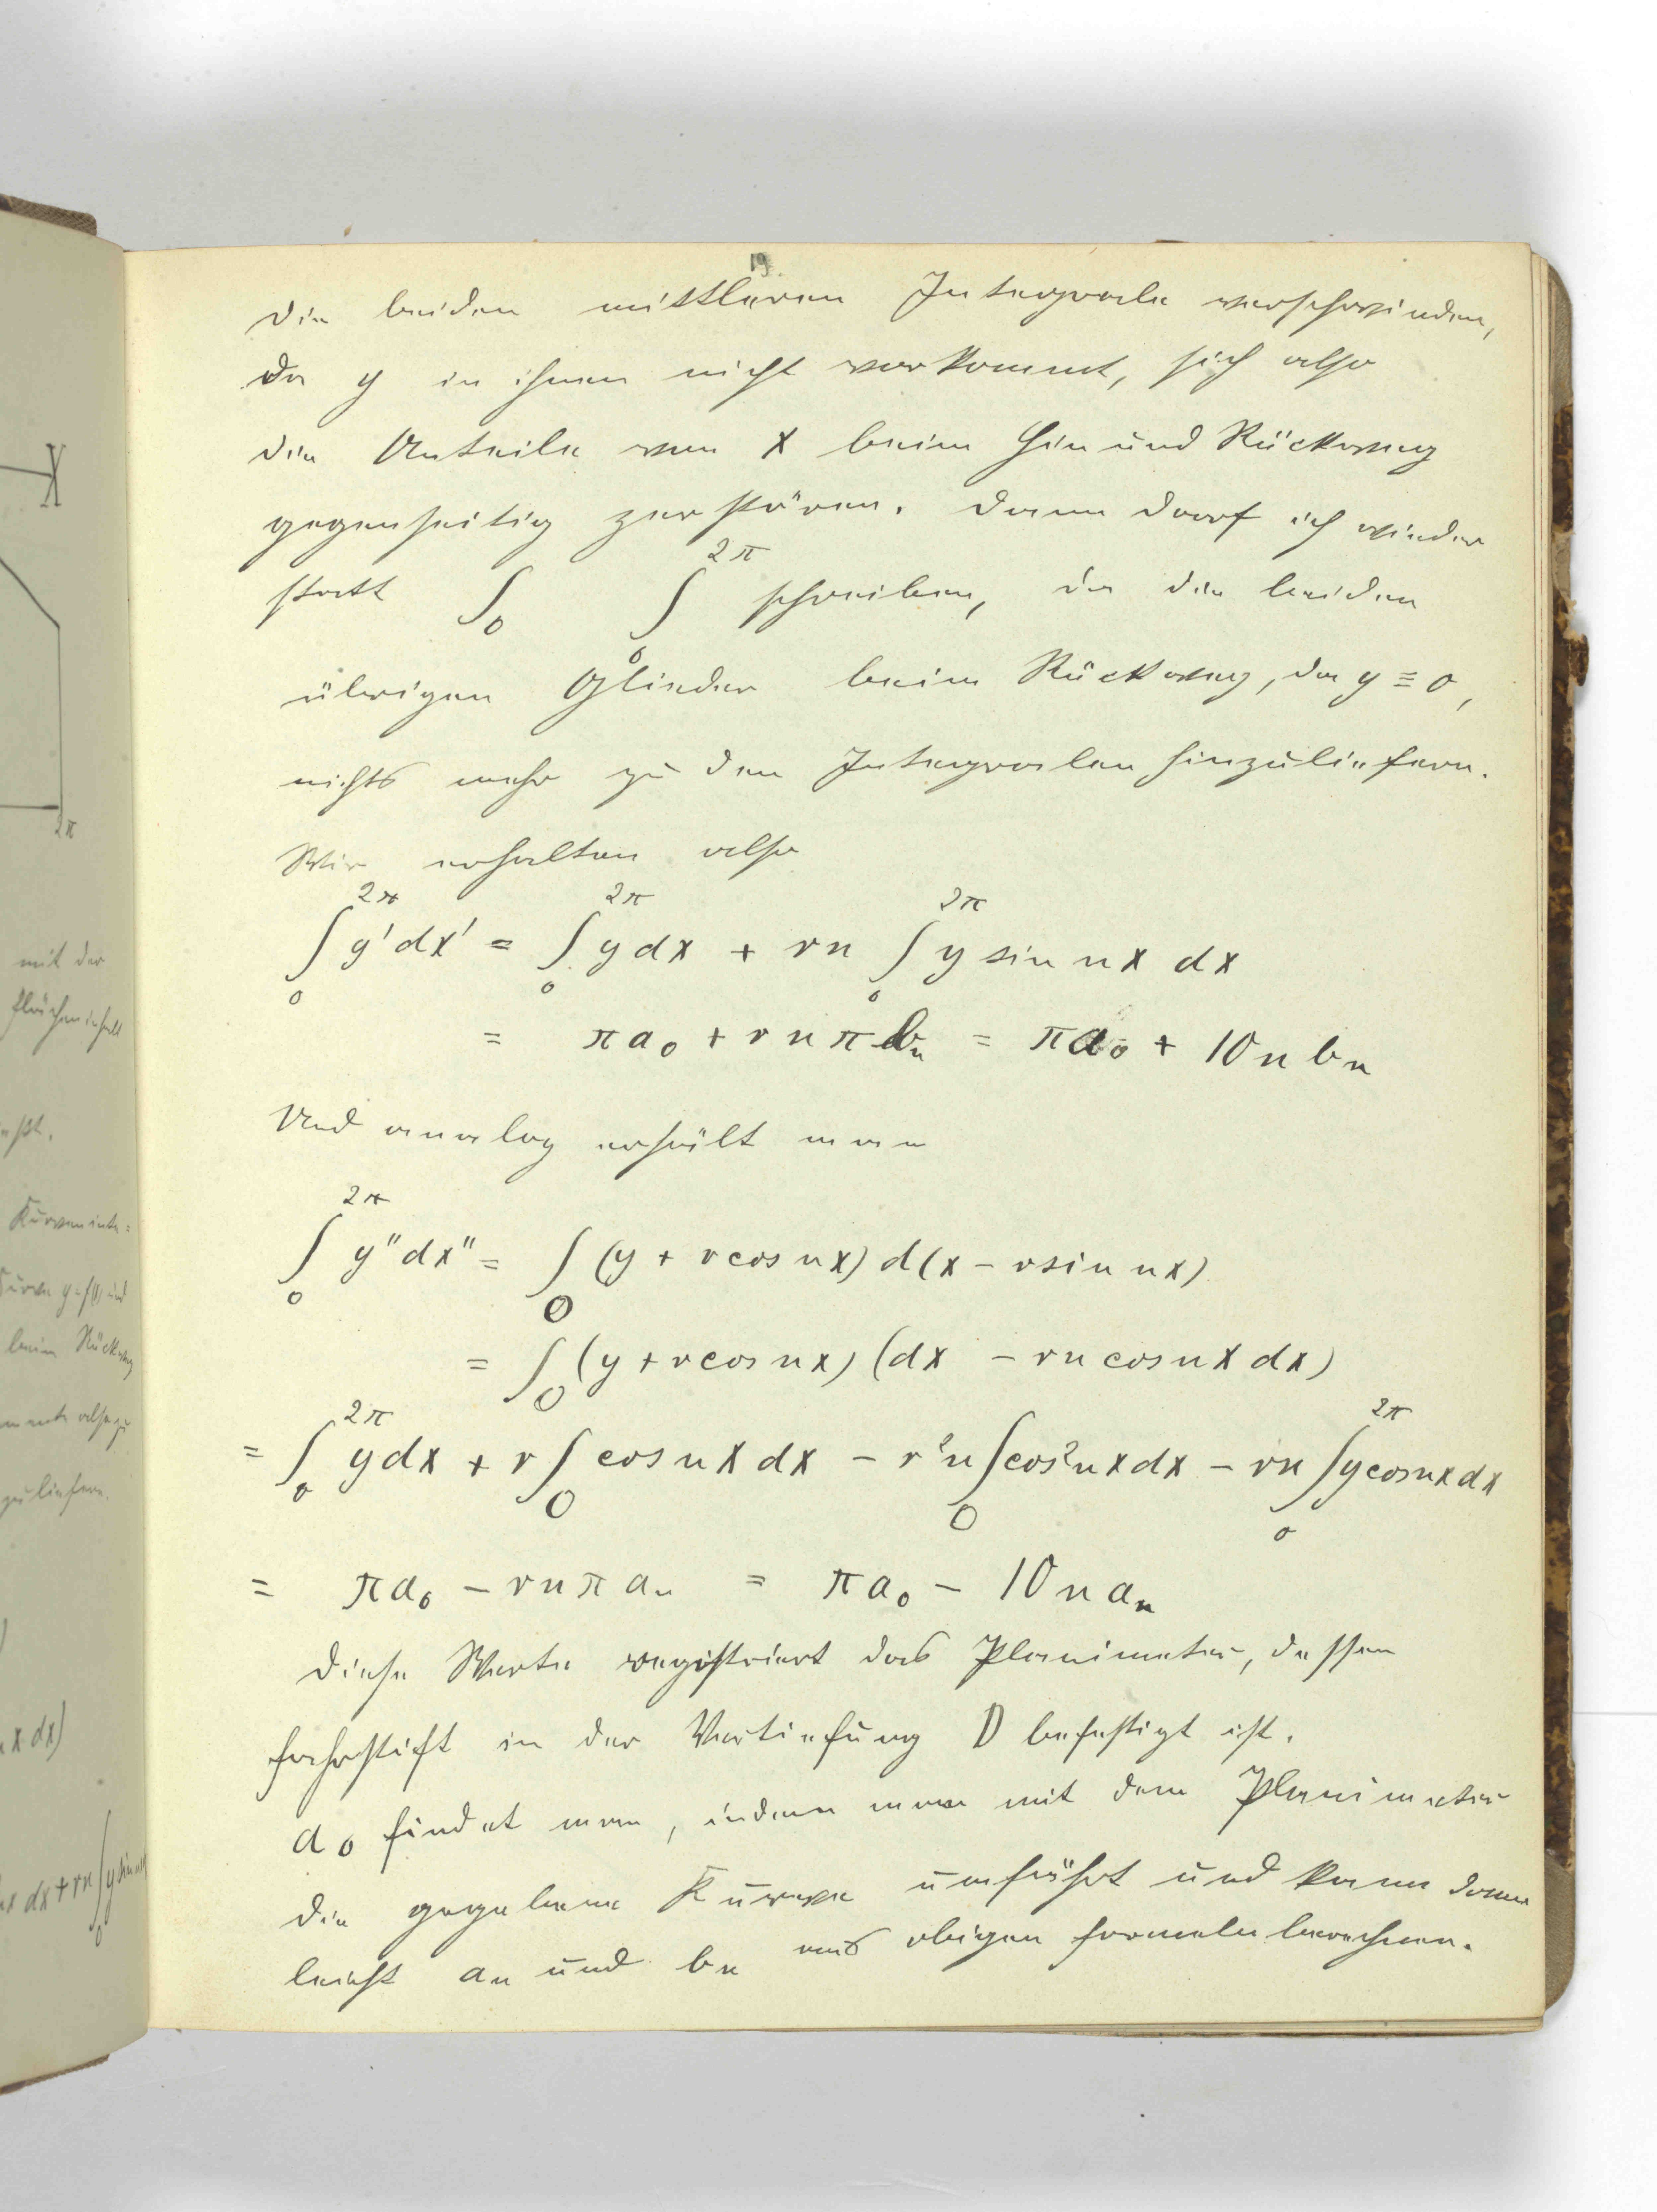 19.
Die beiden mittleren Integrale verschwinden,
da y in ihnen nicht vorkommt, sich also
die Anteile von x beim Hin und Rückweg
gegenseitig zerstören. Dann darf ich wieder
statt ∫₀ ∫₀^2π schreiben, da die beiden
übrigen Glieder beim Rückweg, da y ≡ 0,
nichts mehr zu den Integralen hinzuliefern.
Wir erhalten also
∫₀^2π y'dx' = ∫₀^2π ydx + rn ∫₀^2π y sin nx dx
= πa₀ + rnπbₙ = πa₀ + 10nbₙ
Und analog erhält man
∫₀^2π y"dx" = ∫₀ (y + r cos nx) d(x − r sin nx)
= ∫₀ (y + r cos nx) (dx − rn cos nx dx)
= ∫₀^2π ydx + r∫₀ cos nx dx − r²n∫₀ cos²nx dx − rn ∫₀^2π y cos nx dx
= πa₀ − rnπaₙ = πa₀ − 10naₙ
Diese Werte registriert das Planimeter, dessen
Fahrstift in der Vertiefung D befestigt ist.
a₀ findet man, indem man mit dem Planimeter
die gegebene Kurve umfährt und kann dann
leicht aₙ und bₙ aus obigen Formeln berechnen.
mit der
Flächeninhalt
Kurveninte=
Kurve y=f(x) und
beim Rückweg
also zu
zu liefern.
x dx)
dx + rn ∫₀ y sin
X
2π